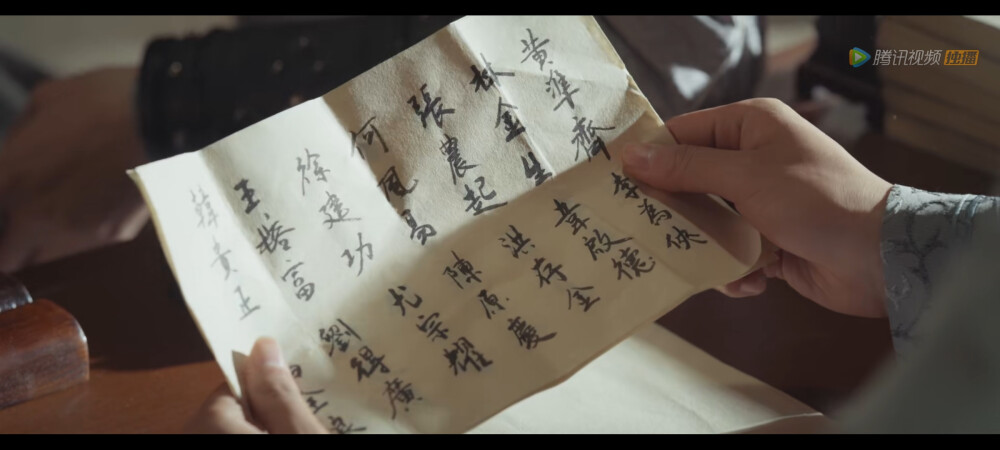 黄準齊
林金生
張農起
何風易
徐建功
韓貴正
李為俠
韋啟德
洪存金
陳原慶
尤宗耀
劉得廣
腾讯视频 独播